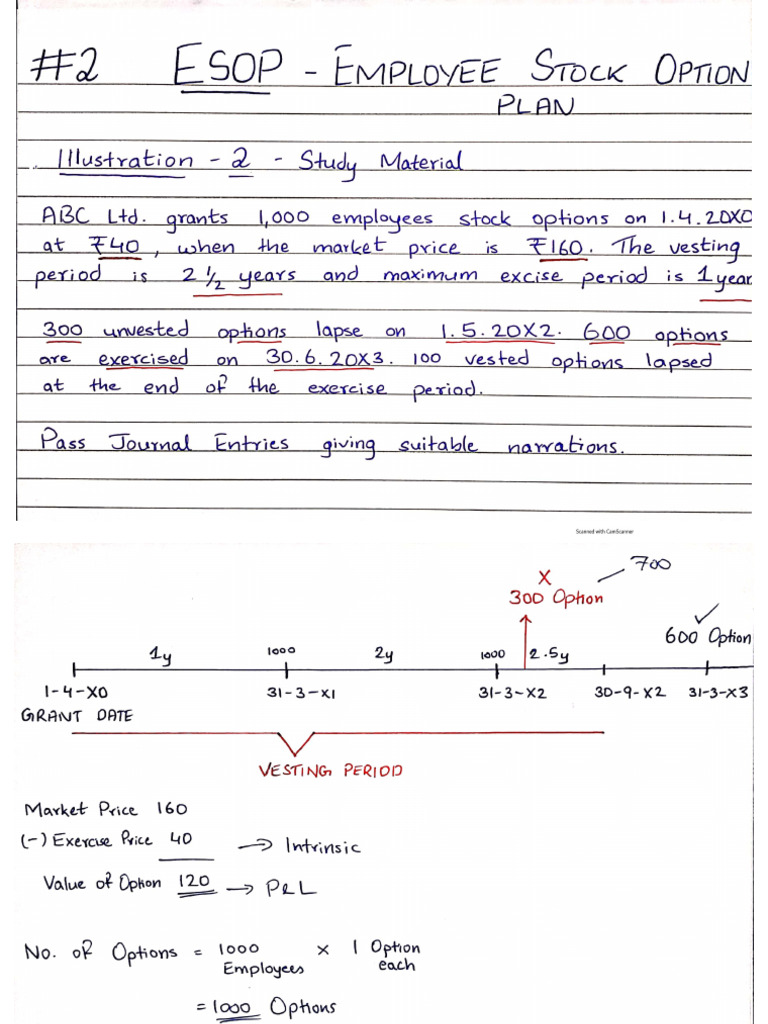 #2 ESOP - EMPLOYEE STOCK OPTION
PLAN
Illustration - 2 - Study Material
ABC Ltd. grants 1,000 employees stock options on 1.4.20X0
at ₹40, when the market price is ₹160. The vesting
period is 2 1/2 years and maximum excise period is 1 year
300 unvested options lapse on 1.5.20X2. 600 options
are exercised on 30.6.20X3. 100 vested options lapsed
at the end of the exercise period.
Pass Journal Entries giving suitable narrations.
Scanned with CamScanner
700
X
300 Option
600 Option
1y 1000 2y 1000 2.5y
1-4-X0 31-3-X1 31-3-X2 30-9-X2 31-3-X3
GRANT DATE
VESTING PERIOD
Market Price 160
(-) Exercise Price 40 → Intrinsic
Value of Option 120 → P&L
No. of Options = 1000 × 1 Option
Employees each
= 1000 Options